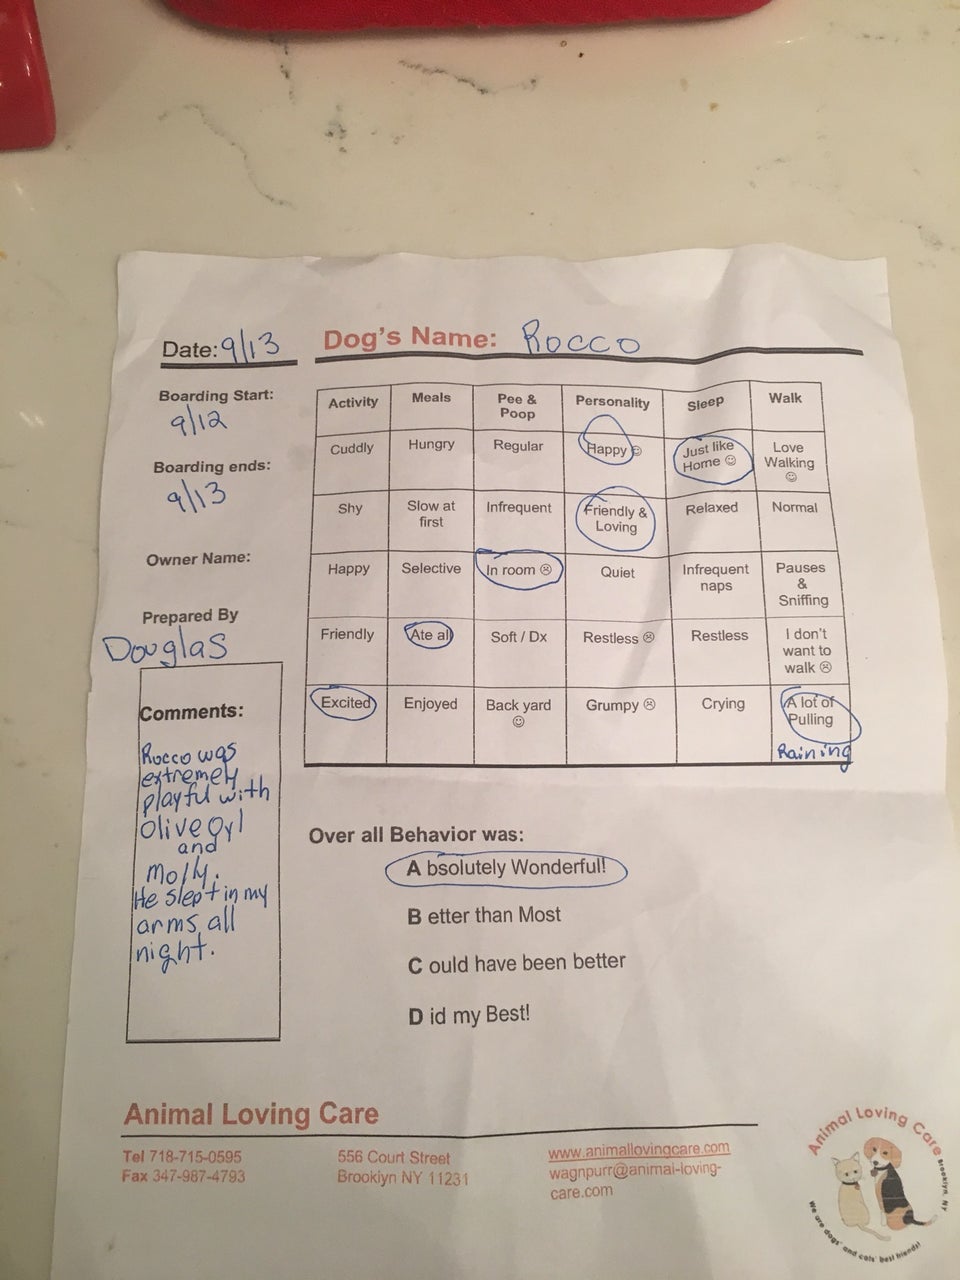 Date: 9/13
Dog's Name: Rocco
Boarding Start:
9/12
Boarding ends:
9/13
Owner Name:
Prepared By
Douglas
Comments:
Rocco was
extremely
playful with
Olive Oyl
and
Molly.
He slept in my
arms all
night.
Activity Meals Pee & Personality Sleep Walk
Poop
Cuddly Hungry Regular Happy ☺ Just like Love
Home ☺ Walking
☺
Shy Slow at Infrequent Friendly & Relaxed Normal
first Loving
Happy Selective In room ☹ Quiet Infrequent Pauses
naps &
Sniffing
Friendly Ate all Soft / Dx Restless ☹ Restless I don't
want to
walk ☹
Excited Enjoyed Back yard Grumpy ☹ Crying A lot of
☺ Pulling
Raining
Over all Behavior was:
A bsolutely Wonderful!
B etter than Most
C ould have been better
D id my Best!
Animal Loving Care
Tel 718-715-0595
Fax 347-987-4793
556 Court Street
Brooklyn NY 11231
www.animallovingcare.com
wagnpurr@animal-loving-
care.com
Animal Loving Care
Brooklyn, NY
We are dogs' and cats' best friends!